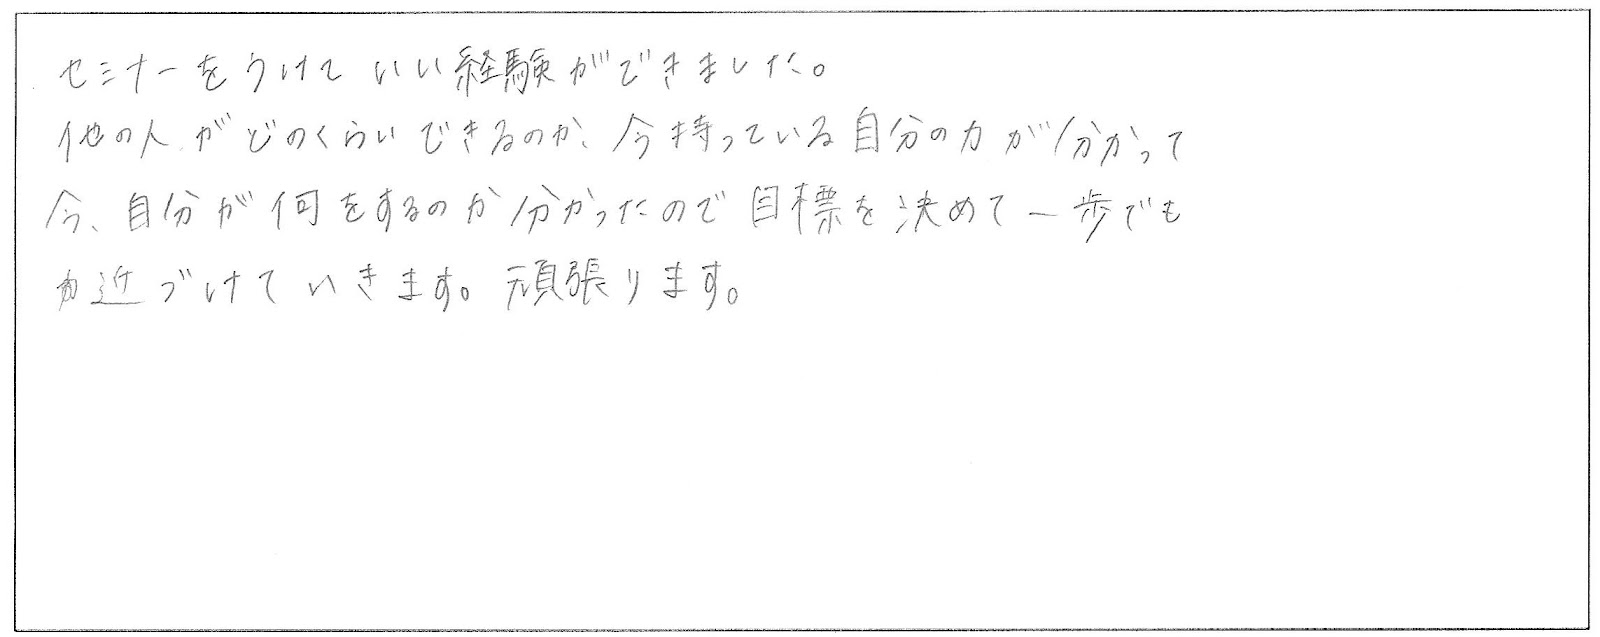 セミナーをうけていい経験ができました。
他の人がどのくらいできるのか、今持っている自分の力が分かって
今、自分が何をするのか分かったので目標を決めて一歩でも
近づけていきます。頑張ります。